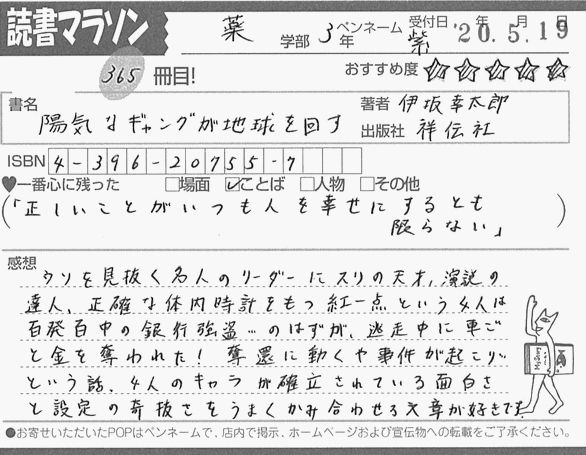 読書マラソン
薬 学部 3年 ペンネーム 紫 受付日 '20.年5.月19日
365 冊目!
おすすめ度 ☆☆☆☆☆
書名 陽気なギャングが地球を回す
著者 伊坂幸太郎
出版社 祥伝社
ISBN 4-396-20755-7
♥一番心に残った □場面 ☑ことば □人物 □その他
(「正しいことがいつも人を幸せにするとも
限らない」)
感想
ウソを見抜く名人のリーダーにスリの天才,演説の
達人,正確な体内時計をもつ紅一点という4人は
百発百中の銀行強盗…のはずが,逃走中に車ご
と金を奪われた!奪還に動くや事件が起こり…
という話.4人のキャラが確立されている面白さ
と設定の奇抜さをうまくかみ合わせる文章が好きです
●お寄せいただいたPOPはペンネームで、店内で掲示、ホームページおよび宣伝物への転載をご了承ください。